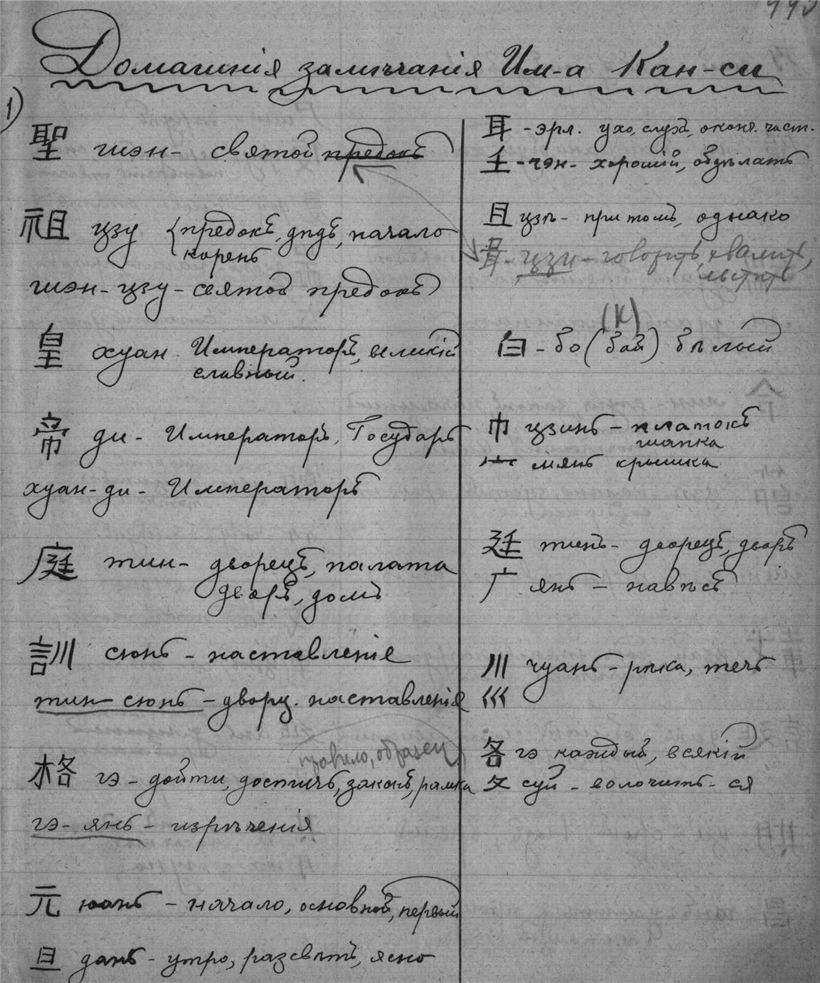 Домашнія замѣчанія Им-а Кан-си
1)
聖 шэн- святой предокъ
祖 цзу {предокъ, дѣдъ, начало
корень
шэн-цзу-святой предокъ
皇 хуан Императоръ, великій
славный.
帝 ди- Императоръ, Государь
хуан-ди- Императоръ
庭 тин- дворецъ, палата
дворъ, домъ
訓 сюнь - наставленіе
тин-сюнь-дворц. наставленія
правило, образец
格 гэ - дойти, достичь, законъ, рамка
гэ-янь- изрѣченія
元 юань - начало, основной, первый
旦 дань - утро, разсвѣтъ, ясно
耳 -эрл. ухо, слухъ, оконч. част.
壬 -чэн- хорошій, отдѣлать
且 цзѣ- при томъ, однако
цзи-говорить, хвалить,
льстить
(к)
白 - бо (бай) бѣлый
巾 цзинь - платокъ
шапка
宀 мянь крышка
廷 тинъ- дворецъ, дворъ
广 янь - навѣсъ
川 чуань - рѣка, течь
巛
各 гэ каждый, всякій
夂 суй - волочить-ся